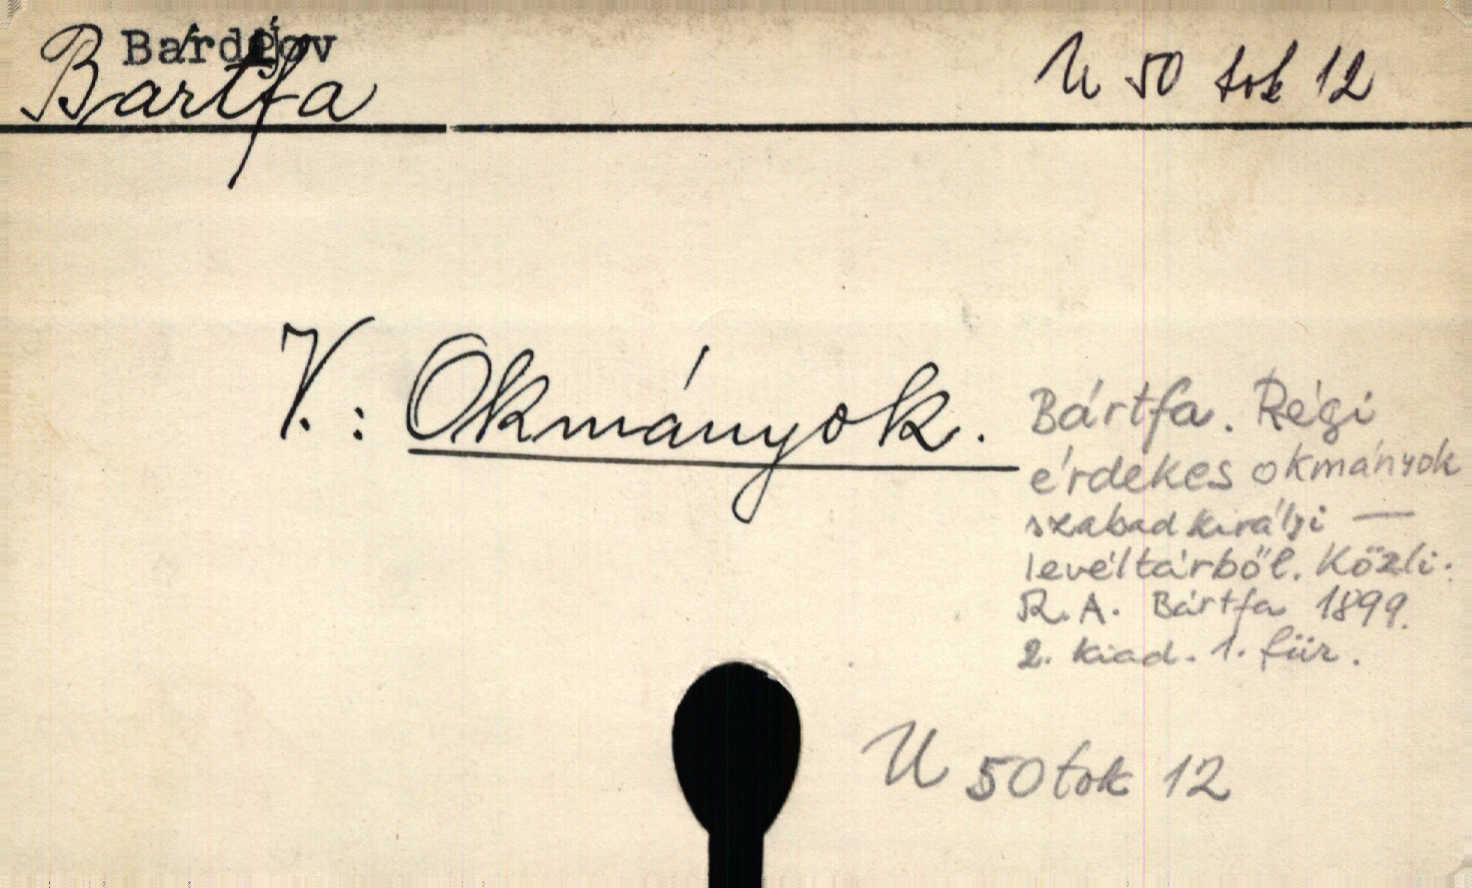 Bardejov
Bártfa
U 50 tok 12
V.: Okmányok.
Bártfa. Régi
érdekes okmányok
szabad királyi —
levéltárből. Közli:
R. A. Bártfa 1899.
2. kiad. 1. füz.
U 50 tok 12